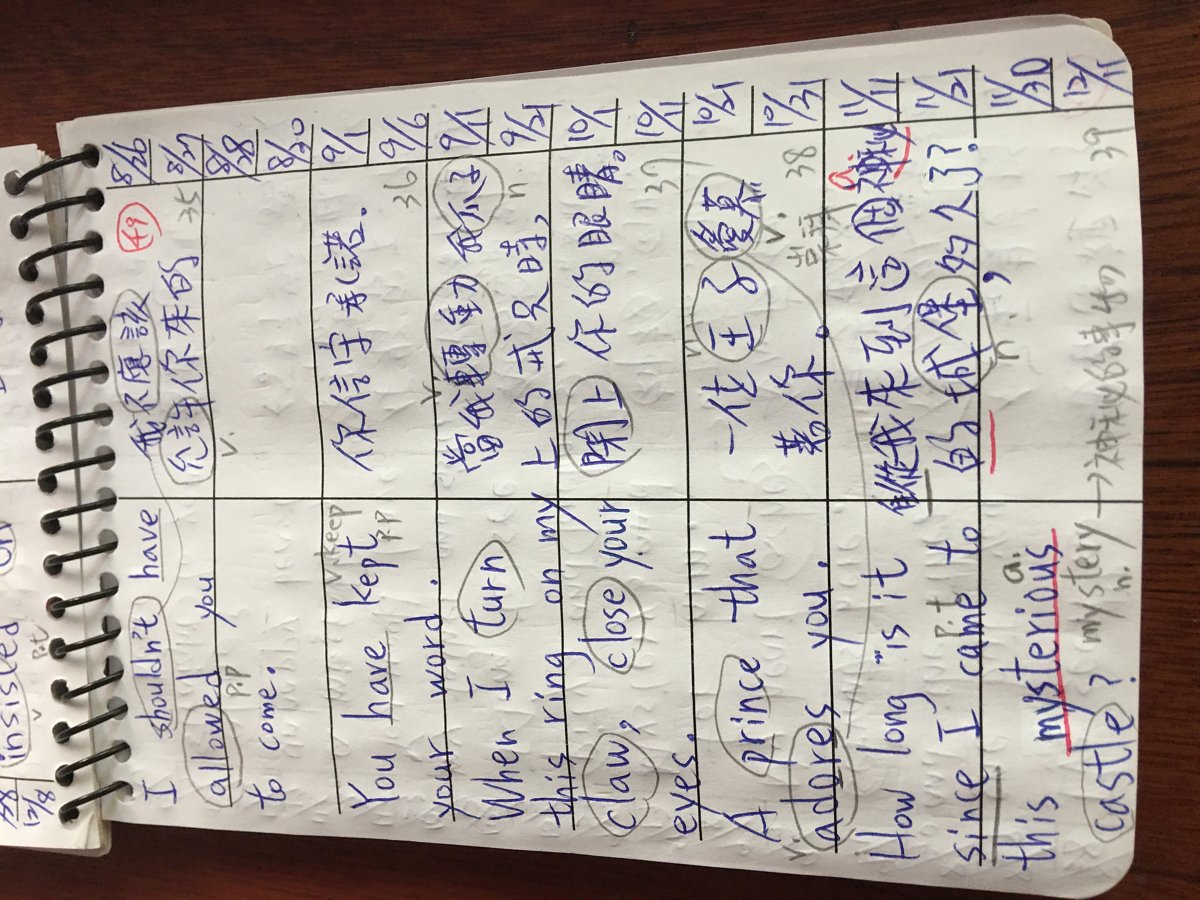 insisted
p.t
v
12/8
I shouldn't have
allowed you
p.p
to come.
我不應該
允許你來的
v.
49
35
8/26
8/27
8/28
8/30
You have kept
v.keep
p.p
your word.
你信守承諾.
36
9/1
9/6
When I turn
this ring on my
claw, close your
eyes.
當我轉動我爪子
v
n
上的戒指時,
閉上你的眼睛。
37
9/11
9/21
10/1
10/11
A prince that
adores you.
v.
一位王子愛慕
n
v.
著你.
38
10/21
10/31
How long is it
since I came to
p.t
this mysterious
a.
castle? mystery → 神秘的事物
n.
我來到這個神秘
a.
的城堡多久了?
n.
39
11/11
11/21
11/30
12/11